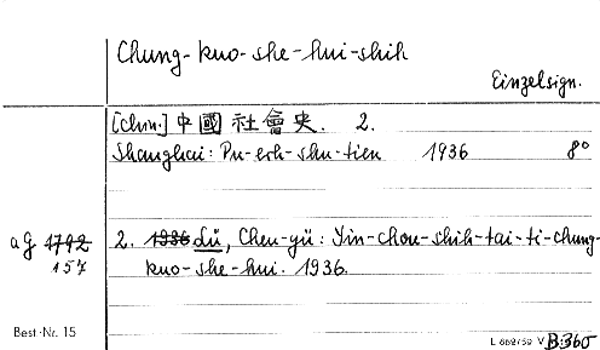 Chung-kuo-she-hui-shih
Einzelsign.
[chin.] 中國社會史. 2.
Shanghai: Pu-erh-shu-tien 1936 8°
ag 1792 2. 1936 Lü, Chen-yü: Yin-chou-shih-tai-ti-chung-
157 kuo-she-hui. 1936.
Best.-Nr. 15
L 662/59 V B365